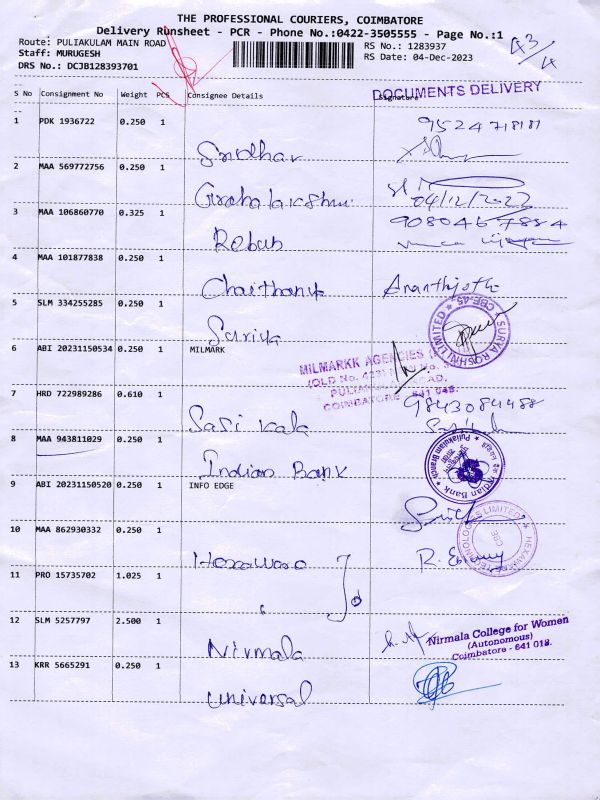 THE PROFESSIONAL COURIERS, COIMBATORE
Delivery Runsheet - PCR - Phone No.:0422-3505555 - Page No.:1
Route: PULIAKULAM MAIN ROAD
Staff: MURUGESH
DRS No.: DCJB128393701
RS No.: 1283937
RS Date: 04-Dec-2023
43/4
DOCUMENTS DELIVERY
S No Consignment No Weight PCS Consignee Details Signature
1 PDK 1936722 0.250 1 Sridhar 9524718181
2 MAA 569772756 0.250 1 04/12/2023
3 MAA 106860770 0.325 1 9080467884
4 MAA 101877838 0.250 1 Ananthjothi
5 SLM 334255285 0.250 1 Suriya
SURYA ROSHNI LIMITED * CBE-45 *
6 ABI 20231150534 0.250 1 MILMARK
MILMARKK AGENCIES
COIMBATORE - 641 045.
7 HRD 722989286 0.610 1 Sasi kala 9843084488
8 MAA 943811029 0.250 1 Indian Bank
Indian Bank * Puliakulam Branch
9 ABI 20231150520 0.250 1 INFO EDGE
10 MAA 862930332 0.250 1 Hexaware
HEXAWARE TECHNOLOGIES LIMITED * CBE
11 PRO 15735702 1.025 1 "
12 SLM 5257797 2.500 1 Nirmala
Nirmala College for Women
(Autonomous)
Coimbatore - 641 018.
13 KRR 5665291 0.250 1 Universal